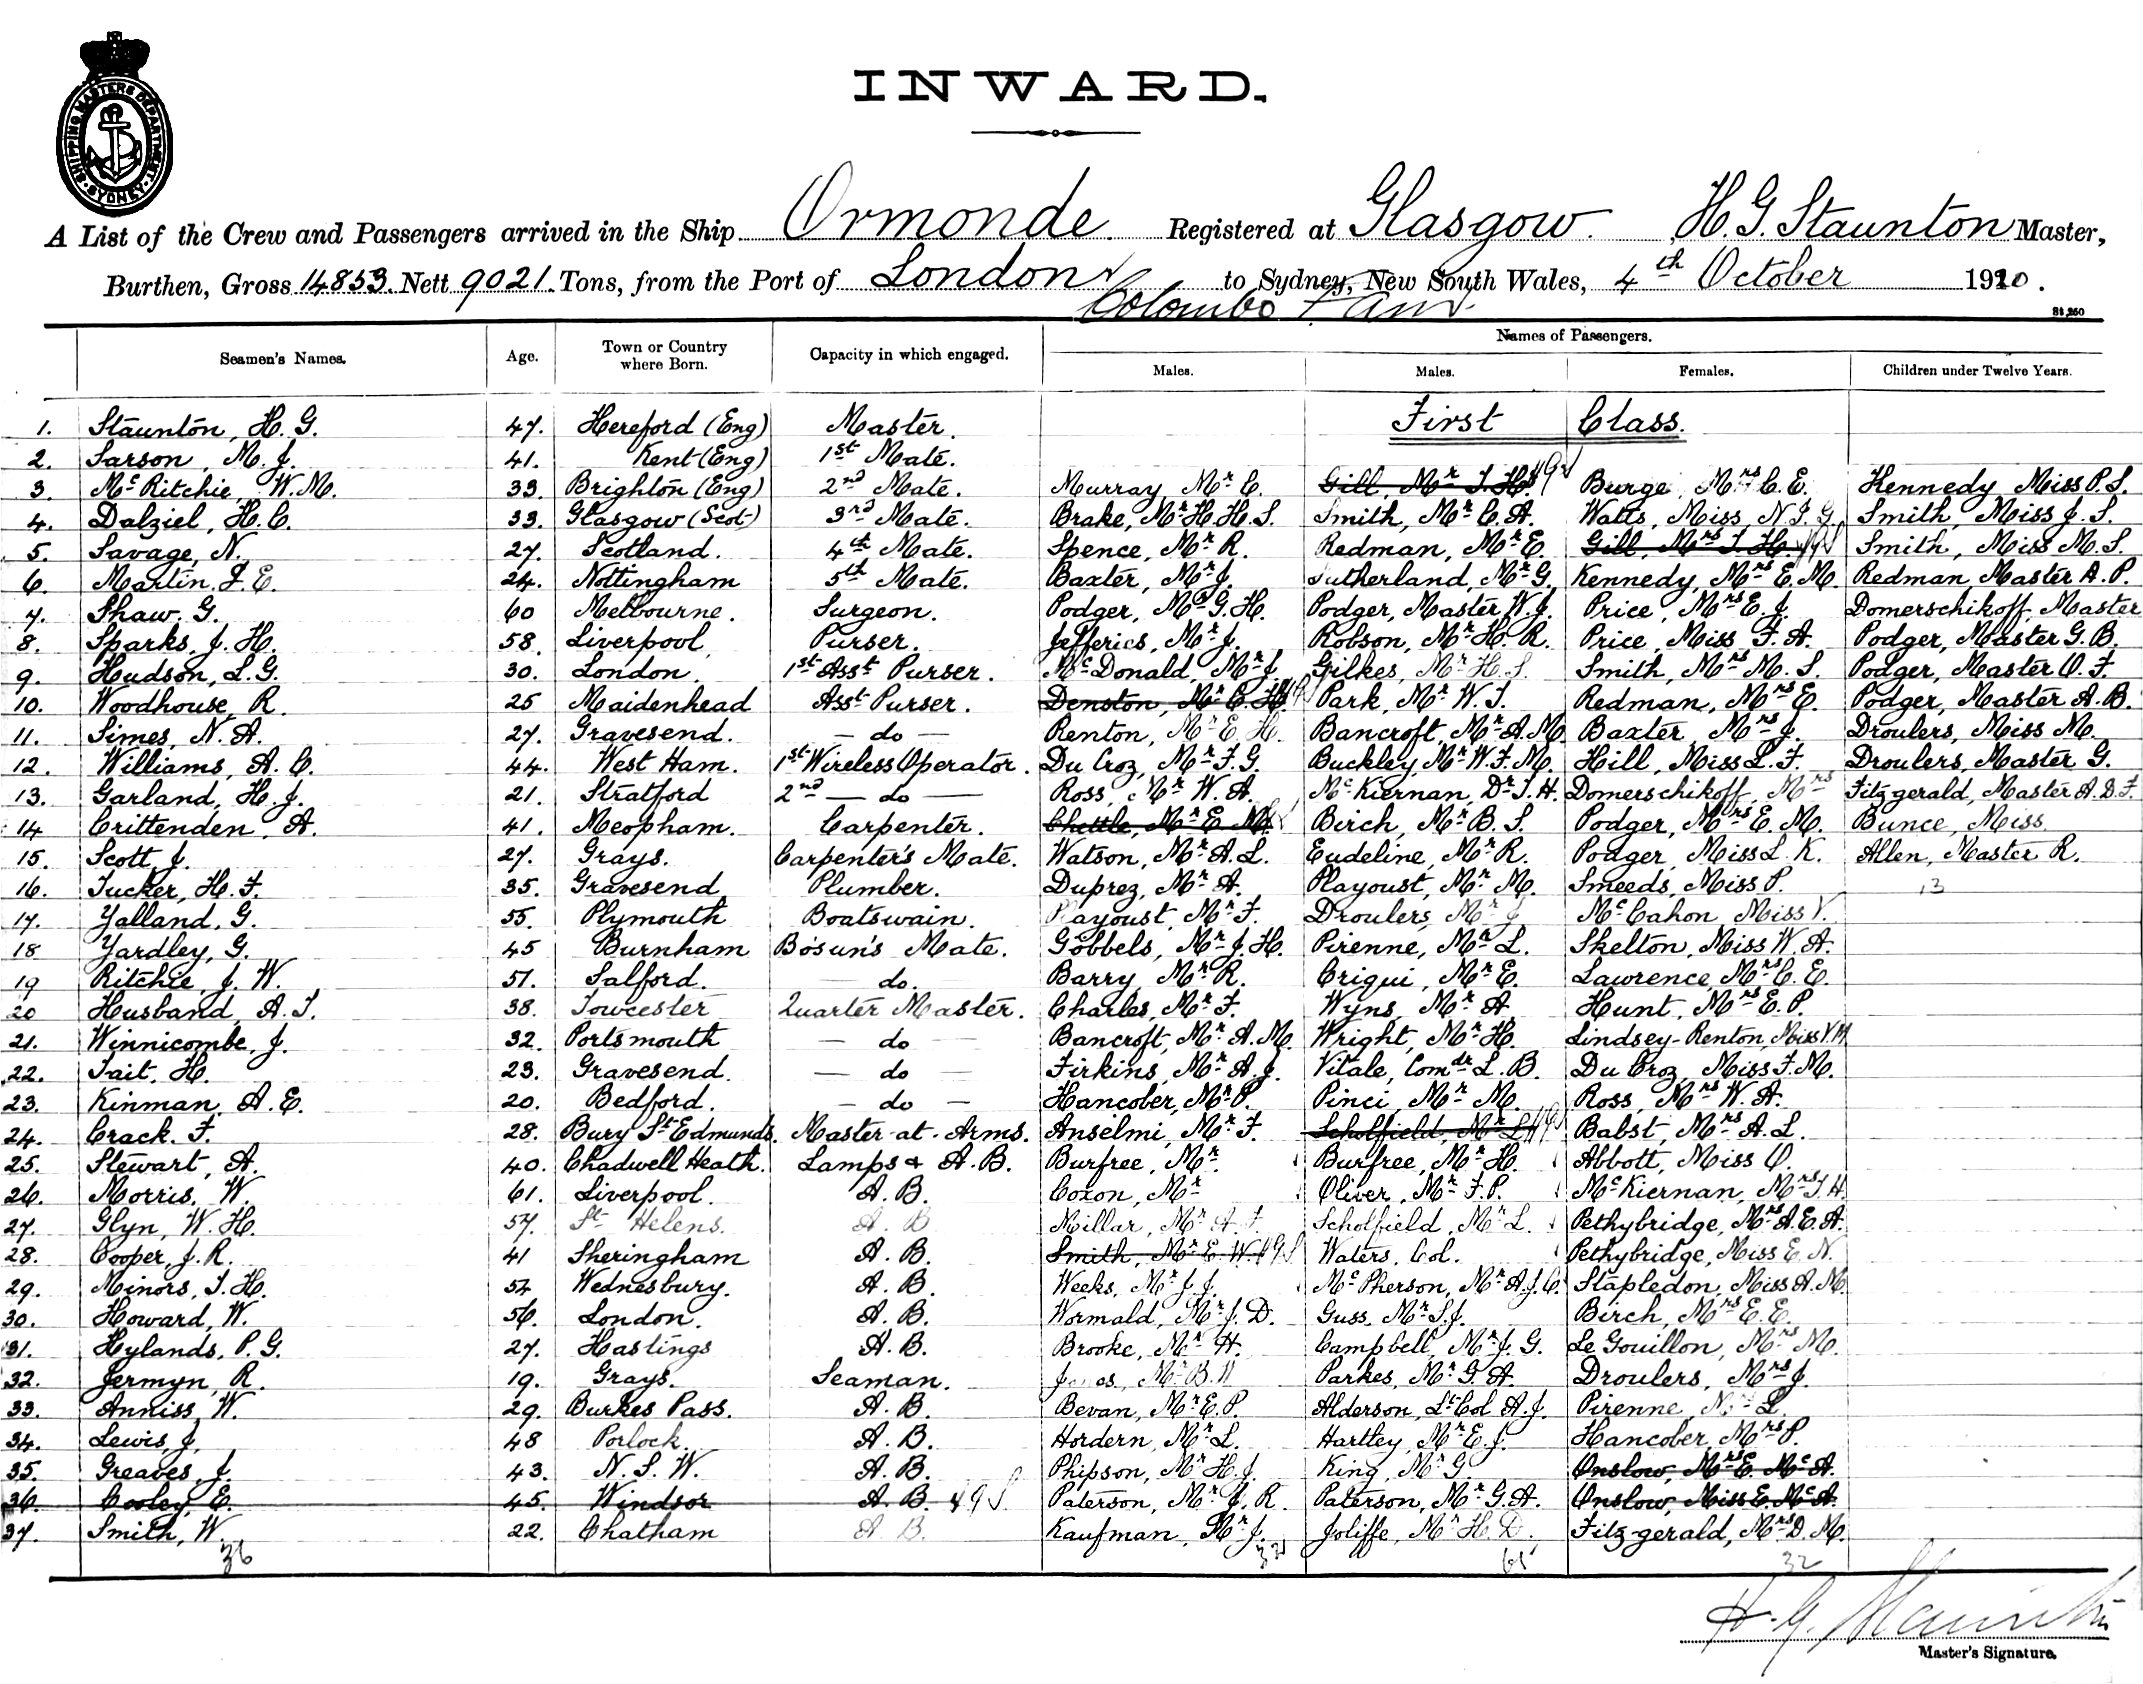 SHIPPING MASTERS DEPARTMENT
SYDNEY
INWARD.
A List of the Crew and Passengers arrived in the Ship Ormonde. Registered at Glasgow. H. G. Staunton Master,
Burthen, Gross 14853. Nett 9021. Tons, from the Port of London to Sydney, New South Wales, 4th October 1920.
Colombo
Seamen's Names. Age. Town or Country where Born. Capacity in which engaged. Names of Passengers.
Males. Males. Females. Children under Twelve Years.
1. Staunton, H. G. 47. Hereford (Eng) Master. First Class.
2. Sarson, M. J. 41. Kent (Eng) 1st Mate.
3. McRitchie, W. M. 33. Brighton (Eng) 2nd Mate. Murray Mr C. Gill, Mr T. H. Burge Mrs C. E. Kennedy Miss P. S.
4. Dalziel, H. C. 33. Glasgow (Scot) 3rd Mate. Brake, Mr H. H. S. Smith, Mr C. A. Watts, Miss N. I. G. Smith, Miss J. S.
5. Savage, N. 27. Scotland. 4th Mate. Spence, Mr R. Redman, Mr E. Gill, Mrs T. H. Smith, Miss M. S.
6. Martin, F. E. 24. Nottingham 5th Mate. Baxter, Mr J. Sutherland, Mr G. Kennedy, Mrs E. M. Redman, Master A. P.
7. Shaw. G. 60 Melbourne. Surgeon. Podger, Mr G. H. Podger, Master W. J. Price, Mrs E. J. Domerschikoff, Master
8. Sparks, J. H. 58. Liverpool Purser. Jefferies, Mr J. Robson, Mr H. R. Price, Miss F. A. Podger, Master G. B.
9. Hudson, L. G. 30. London. 1st Asst Purser. McDonald, Mr J. Gilkes, Mr H. S. Smith, Mrs M. S. Podger, Master O. F.
10. Woodhouse, R. 25 Maidenhead Asst Purser. Denston, Mr C. H. Park, Mr W. T. Redman, Mrs E. Podger, Master A. B.
11. Simes, N. A. 27. Gravesend. — do — Renton, Mr E. H. Bancroft, Mr A. M. Baxter, Mrs J. Droulers, Miss M.
12. Williams, A. C. 44. West Ham. 1st Wireless Operator. Du Croz, Mr F. G. Buckley, Mr W. F. M. Hill, Miss L. F. Droulers, Master G.
13. Garland, H. J. 21. Stratford 2nd — do — Ross, Mr W. A. McKiernan, Dr T. H. Domerschikoff, Mrs Fitzgerald, Master A. D. F.
14 Crittenden, A. 41. Meopham. Carpenter. Chettle, Mr E. M. Birch, Mr B. S. Podger, Mrs E. M. Bunce, Miss
15. Scott, J. 27. Grays. Carpenter's Mate. Watson, Mr A. L. Eudeline, Mr R. Podger, Miss L. K. Allen, Master R.
16. Tucker, H. F. 35. Gravesend Plumber. Duprez, Mr A. Playoust, Mr M. Smeeds, Miss P. 13
17. Yalland, G. 55. Plymouth Boatswain. Playoust, Mr F. Droulers, Mr J. McCahon, Miss V.
18 Yardley, G. 45 Burnham Bosun's Mate. Gobbels, Mr J. H. Pirenne, Mr L. Skelton, Miss W. A.
19 Ritchie, J. W. 51. Salford. — do. Barry, Mr R. Criqui, Mr E. Lawrence, Mrs C. E.
20 Husband, A. T. 38. Towcester Quarter Master. Charles, Mr F. Wyns, Mr A. Hunt, Mrs E. P.
21. Winnicombe, J. 32. Portsmouth — do — Bancroft, Mr A. M. Wright, Mr H. Lindsey-Renton, Miss V. M
22. Tait, H. 23. Gravesend. — do — Firkins, Mr A. J. Vitale, Comdr L. B. Du Croz, Miss F. M.
23. Kinman, A. E. 20. Bedford. — do — Hancober, Mr P. Pinci, Mr M. Ross, Mrs W. A.
24. Crack. F. 28. Bury St Edmunds. Master-at-Arms. Anselmi, Mr F. Scholfield, Mr L. Babst, Mrs A. L.
25. Stewart, A. 40. Chadwell Heath. Lamps & A. B. Burfree, Mr Burfree, Mr H. Abbott, Miss O.
26. Morris, W. 61. Liverpool. A. B. Coxon, Mr Oliver, Mr F. P. McKiernan, Mrs T. H
27. Glyn, W. H. 57. St Helens. A. B Millar, Mr A. F. Scholfield, Mr L. Pethybridge, Mrs A. E. A.
28. Cooper, J. R. 41 Sheringham A. B. Smith, Mr E. W. Waters, Col. Pethybridge, Miss E. N.
29. Minors, T. H. 52 Wednesbury. A. B. Weeks, Mr J. J. McPherson, Mr A. J. C. Stapledon, Miss A. M.
30. Howard, W. 56. London. A. B. Wormald, Mr J. D. Guss, Mr S. J. Birch, Mrs E. E.
31. Hylands, P. G. 27. Hastings A. B. Brooke, Mr H. Campbell, Mr J. G. Le Gouillon, Mrs M.
32. Jermyn, R. 19. Grays. Seaman. Jones, Mr B. Parkes, Mr G. A. Droulers, Mrs J.
33. Anniss, W. 29. Burkes Pass. A. B. Bevan, Mr E. P. Alderson, Lt Col A. J. Pirenne L.
34. Lewis, J. 48 Porlock. A. B. Hordern, Mr L. Hartley, Mr E. J. Hancober, Mrs P.
35. Greaves, J. 43. N. S. W. A. B. Phipson, Mr H. J. King, Mr G. Onslow, Mrs E. McA.
36. Cooley, E. 45. Windsor A. B. Paterson, Mr J. R. Paterson, Mr G. A. Onslow, Miss E. McA.
37. Smith, W. 22. Chatham A. B. Kaufman, Mr J. Joliffe, Mr H. D. Fitz-gerald, Mrs D. M.
36 32
H. G. Staunton
Master's Signature.